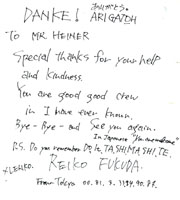 DANKE! ARIGATOH
To MR. HEINER
Special thanks for your help
and kindness.
You are good good crew
in I have ever known.
Bye-Bye- and See you again.
In Japanese
P.S. Do you remember DO, ITASHIMASHITE.
REIKO FUKUDA.
From Tokyo